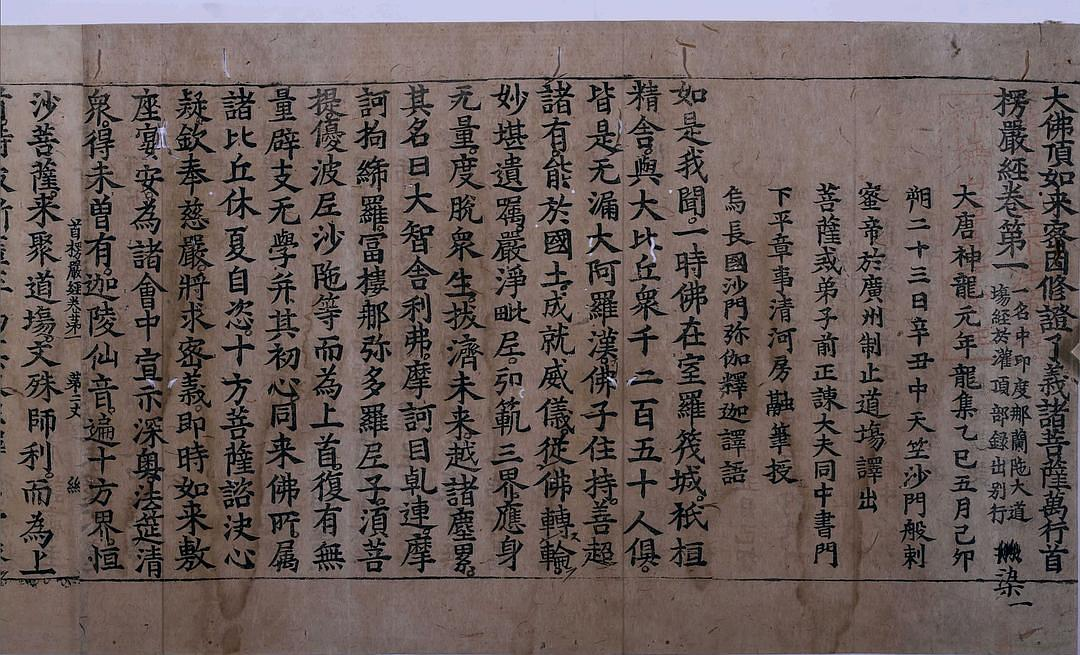 大佛頂如来密因修證了義諸菩薩萬行首
楞嚴經卷第一 一名中印度那蘭陁大道
塲經於灌頂部録出别行 染一
大唐神龍元年龍集乙巳五月己卯
朔二十三日辛丑中天竺沙門般剌
蜜帝於廣州制止道塲譯出
菩薩戒弟子前正諫大夫同中書門
下平章事清河房融筆授
烏長國沙門弥伽釋迦譯語
如是我聞。一時佛在室羅筏城。祇桓
精舍。與大比丘衆千二百五十人俱。
皆是无漏大阿羅漢。佛子住持。善超
諸有。能於國土。成就威儀。從佛轉輪。
妙堪遺囑。嚴淨毗尼。弘範三界。應身
无量。度脫衆生。拔濟未来。越諸塵累。
其名曰大智舍利弗。摩訶目乹連。摩
訶拘絺羅。富樓那弥多羅尼子。湏菩
提。優波尼沙陁等而為上首。復有無
量辟支无學并其初心。同来佛所。属
諸比丘休夏自恣。十方菩薩諮決心
疑。欽奉慈嚴。將求密義。即時如来敷
座宴安。為諸會中宣示深奥。法筵清
衆。得未曾有。迦陵仙音。遍十方界。恒
首楞嚴經卷第一 第二丈 絲
沙菩薩。来聚道塲。文殊師利。而為上